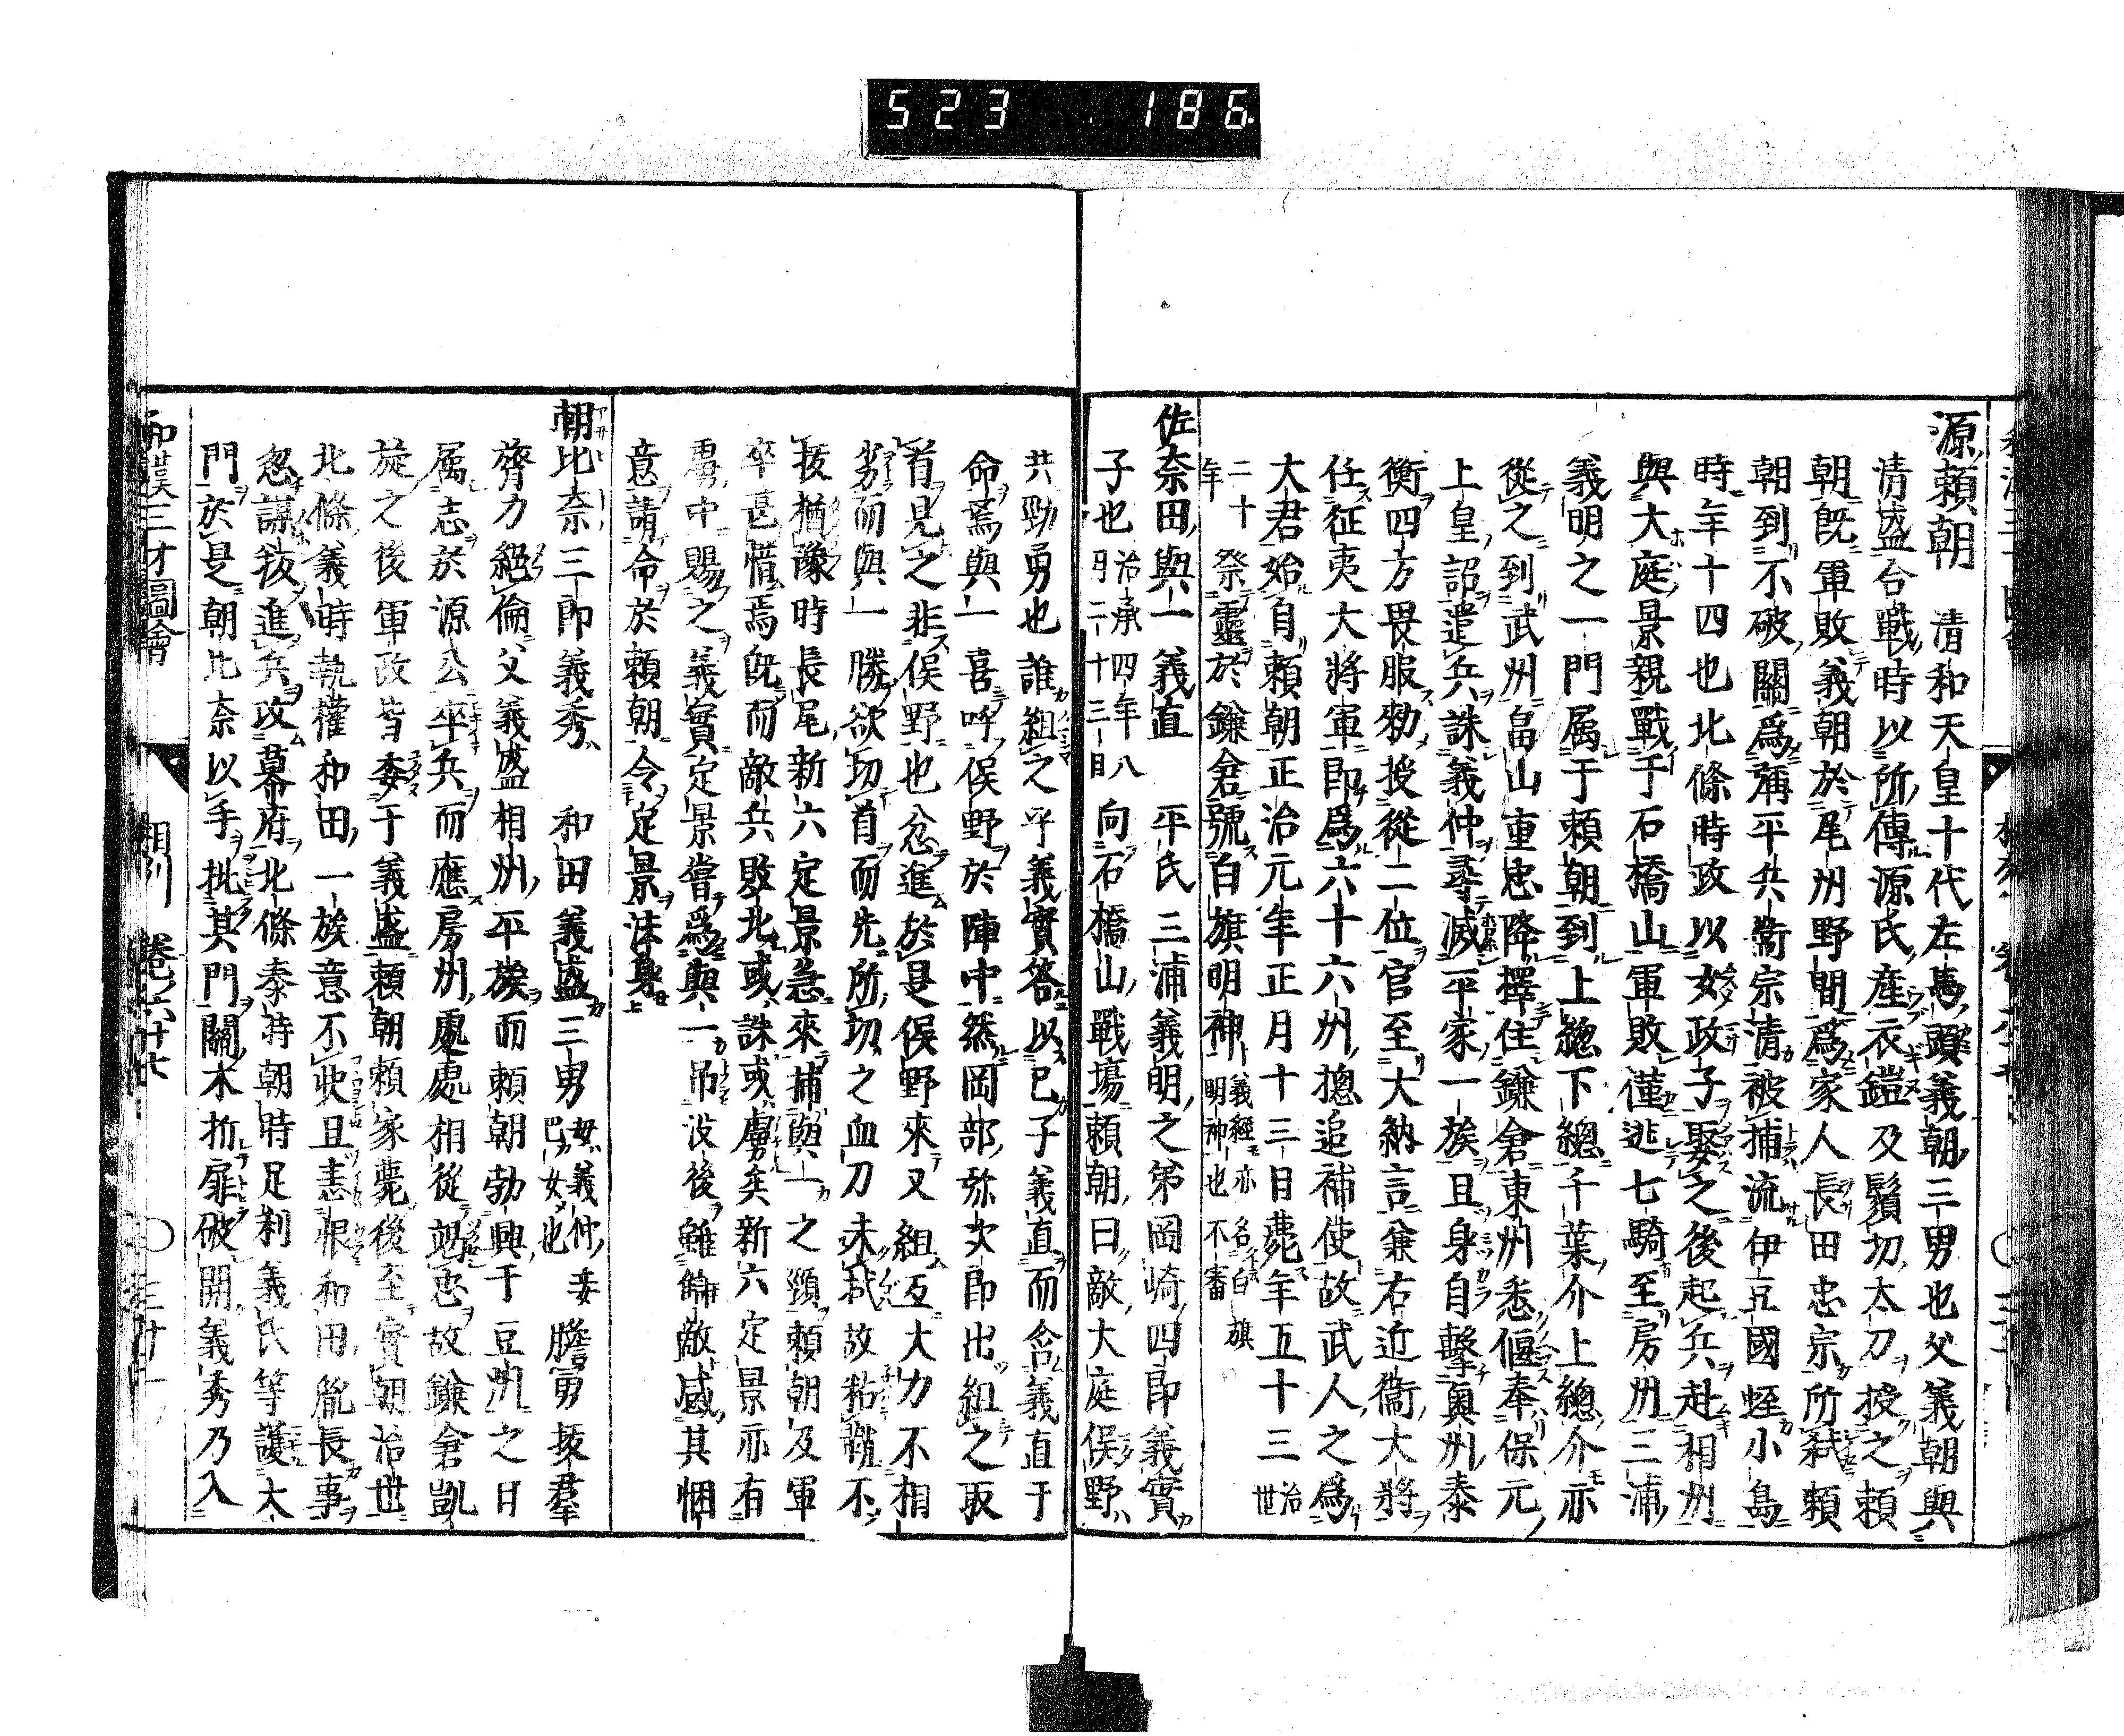 523 186
源頼朝 清和天皇十代左馬頭義朝三男也父義朝與
清盛合戰時以所傳源氏産衣鎧及鬚切太刀授之頼
朝既軍敗義朝於尾州野間爲家人長田忠宗所弑頼
朝到不破關爲彌平兵衞宗清被捕流伊豆國蛭小島
時年十四也北條時政以女政子娶之後起兵赴相州
與大庭景親戰于石橋山軍敗僅逃七騎至房州三浦
義明之一門属于頼朝到上総下總千葉介上總介亦
從之到武州畠山重忠降擇住鎌倉東州悉偃奉保元
上皇詔遣兵誅義仲尋滅平家一族且身自擊奥州泰
衡四方畏服勅授從二位官至大納言兼右近衞大將
任征夷大將軍即爲六十六州摠追補使故武人之爲
大君始自頼朝正治元年正月十三日薨年五十三治世
二十年 祭靈於鎌倉號白旗明神義經亦名白旗明神也不審
佐奈田與一義直 平氏三浦義明之第岡崎四郎義實
子也治承四年八月二十三日向石橋山戰塲頼朝曰敵大庭俣野
共勁勇也誰組之乎義實答以己子義直而令義直于
命焉與一喜呼俣野於陣中然岡部弥次郎出組之取
首見之非俣野也忿進於是俣野來又組互大力不相
劣而與一勝欲切首而先所切之血刀未拭故粘鞘不
拔猶豫時長尾新六定景急來捕與一之頸頼朝及軍
卒甚惜焉既而敵兵敗北或誅或虜矣新六定景亦有
虜中賜之義實定景嘗爲與一吊没後雖讎敵感其悃
意請命於頼朝令定景沫身上
朝比奈三郎義秀 和田義盛三男女義仲妾巴女也膽勇抜羣
膂力絕倫父義盛相州平族而頼朝勃興于豆州之日
属志於源公卒兵而應房州處處相從竭忠故鎌倉凱
旋之後軍政皆委于義盛頼朝頼家薨後至實朝治世
北條義時執權和田一族意不快且恚恨和田胤長事
忽謀叛進兵攻幕府北條泰時朝時足利義氏等護大
門於是朝比奈以手批其門關木折扉破開義秀乃入
和漢三才圖會 相州 巻六十七